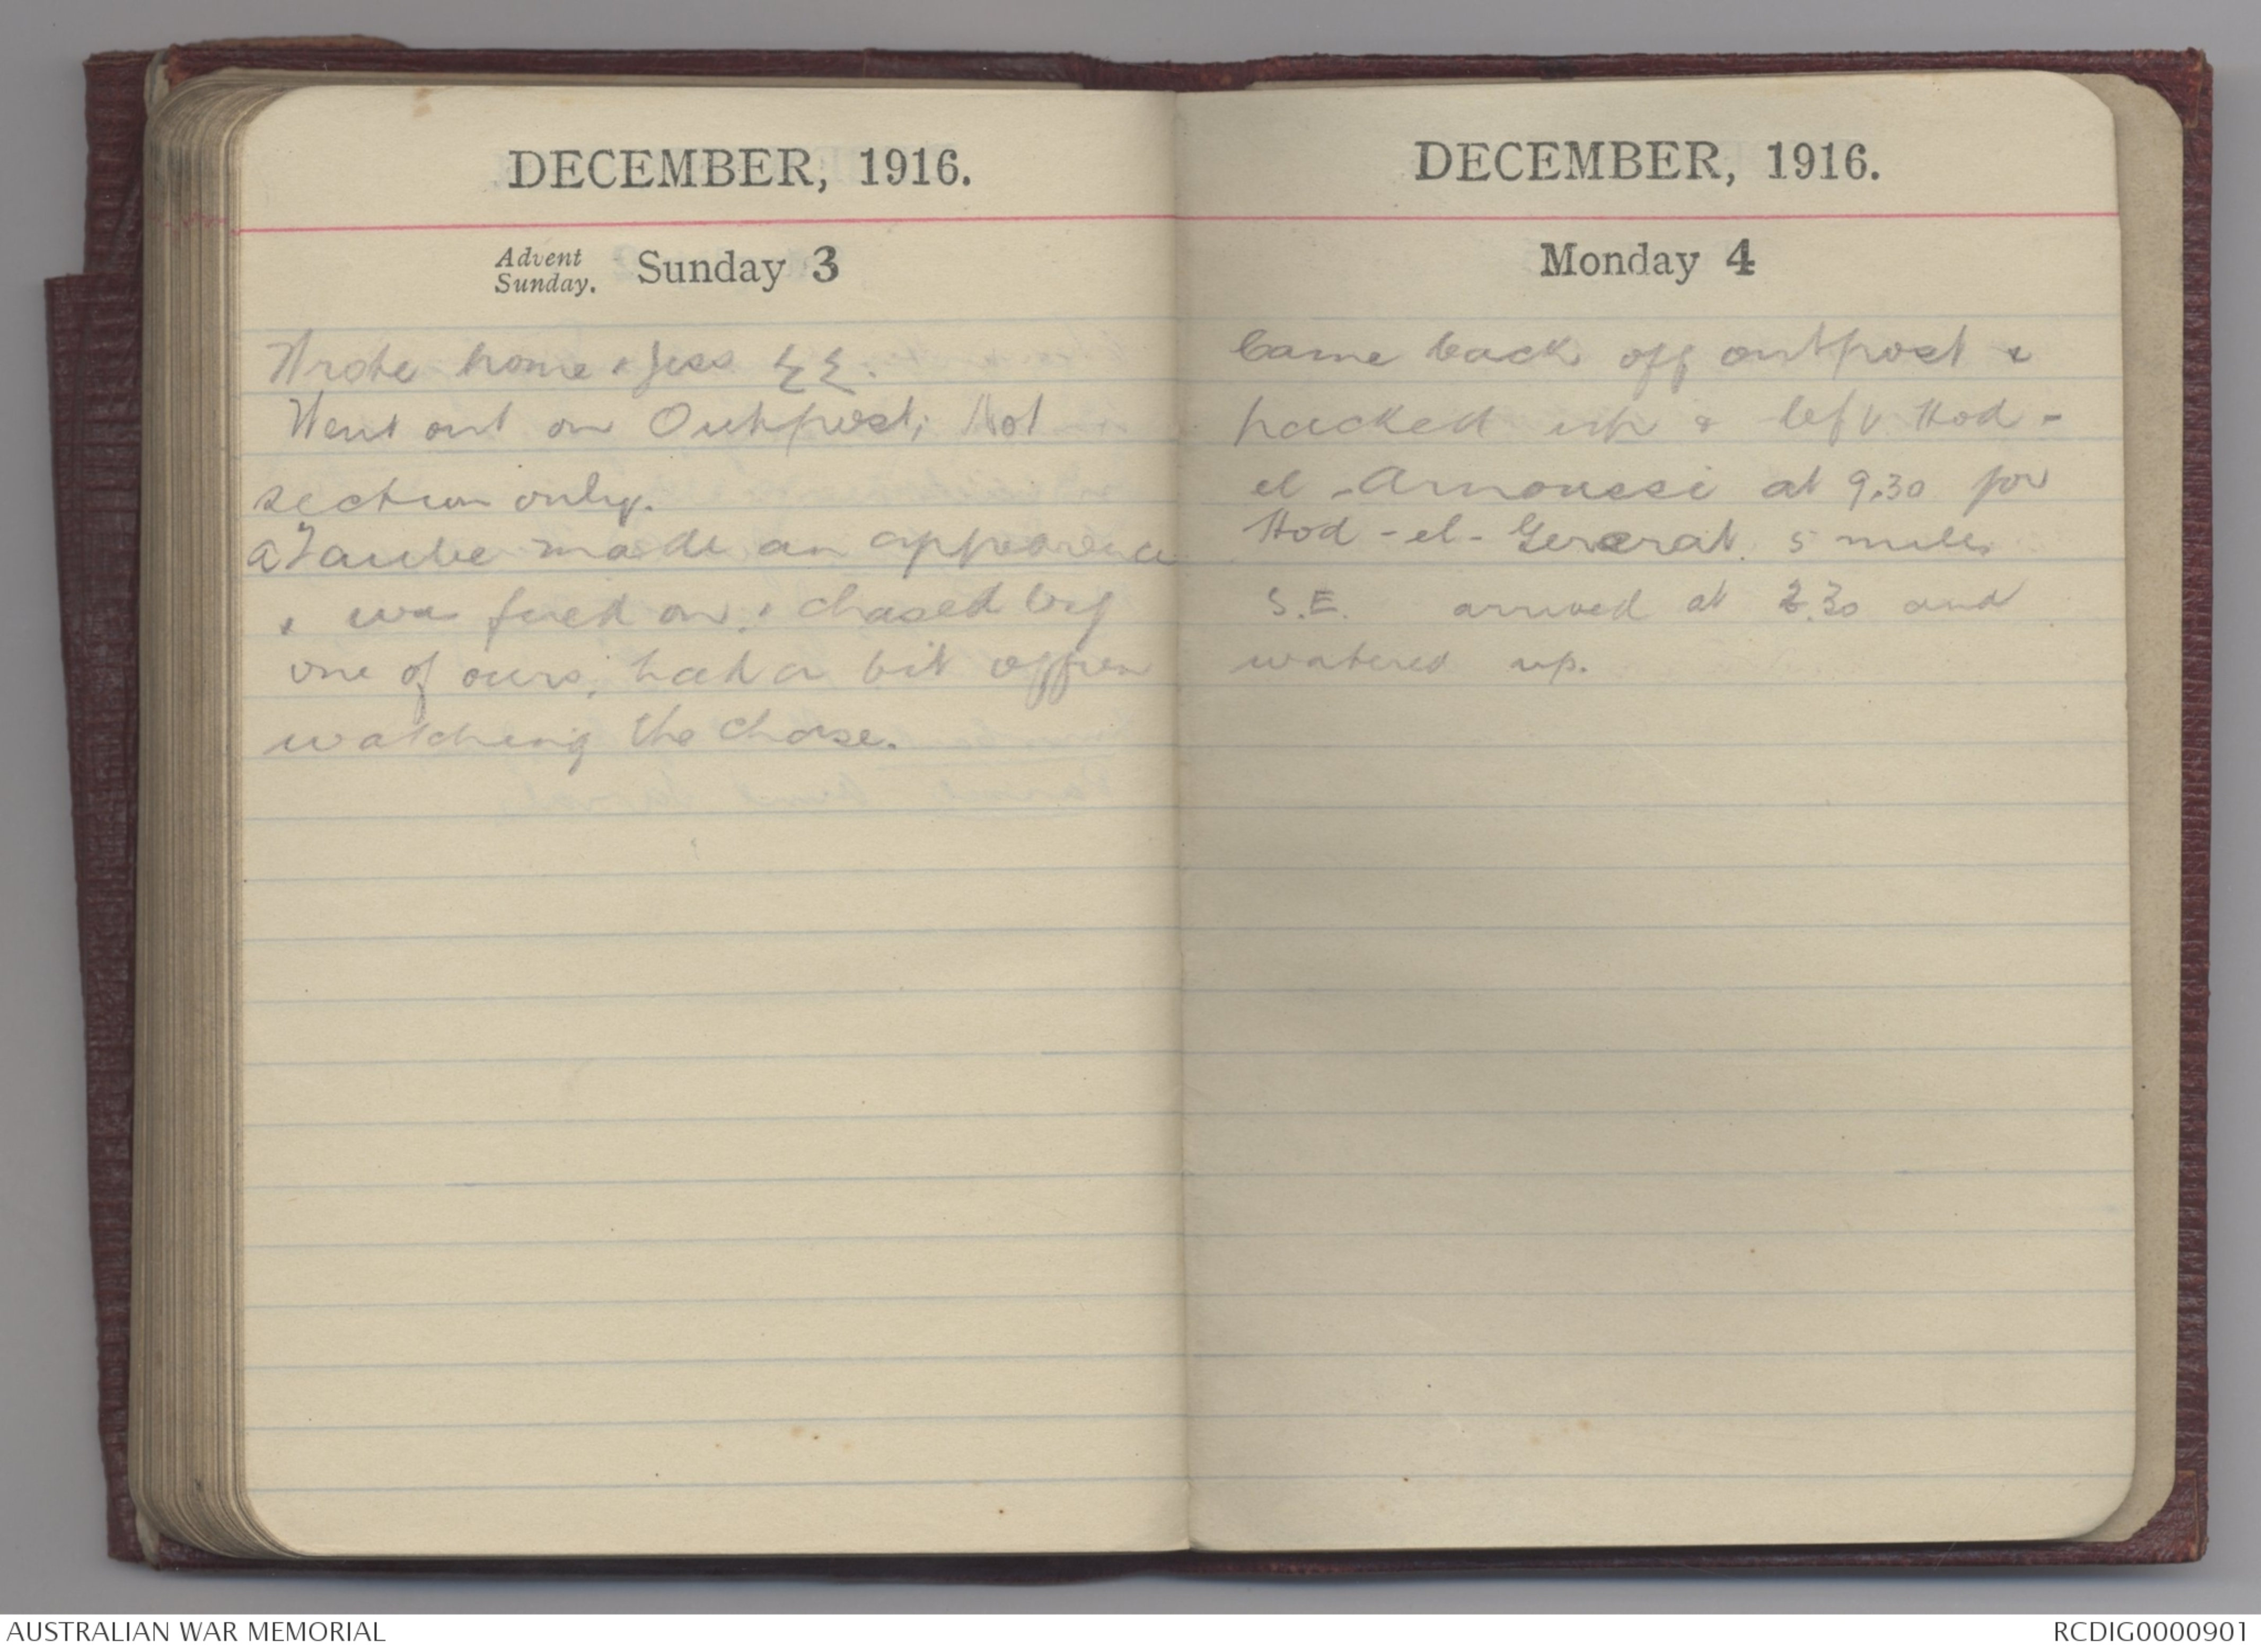 DECEMBER, 1916.
Advent Sunday. Sunday 3
Wrote home & Jess
Went out on Outpost; Hot
section only.
a Taube made an appearance
& was fired on, & chased by
one of ours, had a bit of fun
watching the chase.
DECEMBER, 1916.
Monday 4
Came back off outpost &
packed up & left Hod -
el - Arnoussi at 9.30 for
Hod - el - Gererat. 5 miles
S.E. arrived at 2.30 and
watered up.
AUSTRALIAN WAR MEMORIAL
RCDIG0000901